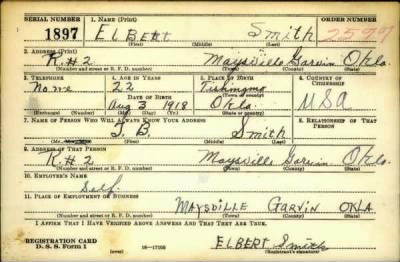 SERIAL NUMBER 1. NAME (Print) ORDER NUMBER
1897 ELBERT Smith 2597
(First) (Middle) (Last)
2. ADDRESS (Print)
R.#2 Maysville Garvin Okla.
(Number and street or R. F. D. number) (Town) (County) (State)
3. TELEPHONE 4. AGE IN YEARS 5. PLACE OF BIRTH 6. COUNTRY OF CITIZENSHIP
None 22 Tishingmo
DATE OF BIRTH (Town or county)
Aug 3 1918 Okla. USA
(Exchange) (No.) (Mo.) (Day) (Yr.) (State or country)
7. NAME OF PERSON WHO WILL ALWAYS KNOW YOUR ADDRESS 8. RELATIONSHIP OF THAT PERSON
B. Smith
(Mr., Mrs., Miss) (First) (Middle) (Last)
9. ADDRESS OF THAT PERSON
R#2 Maysville Garvin Okla.
(Number and street or R. F. D. number) (Town) (County) (State)
10. EMPLOYER'S NAME
Self.
11. PLACE OF EMPLOYMENT OR BUSINESS
MAYSVILLE GARVIN OKLA
(Number and street or R. F. D. number) (Town) (County) (State)
I AFFIRM THAT I HAVE VERIFIED ABOVE ANSWERS AND THAT THEY ARE TRUE.
REGISTRATION CARD ELBERT Smith
D. S. S. Form 1 16—17105 (Registrant's signature)